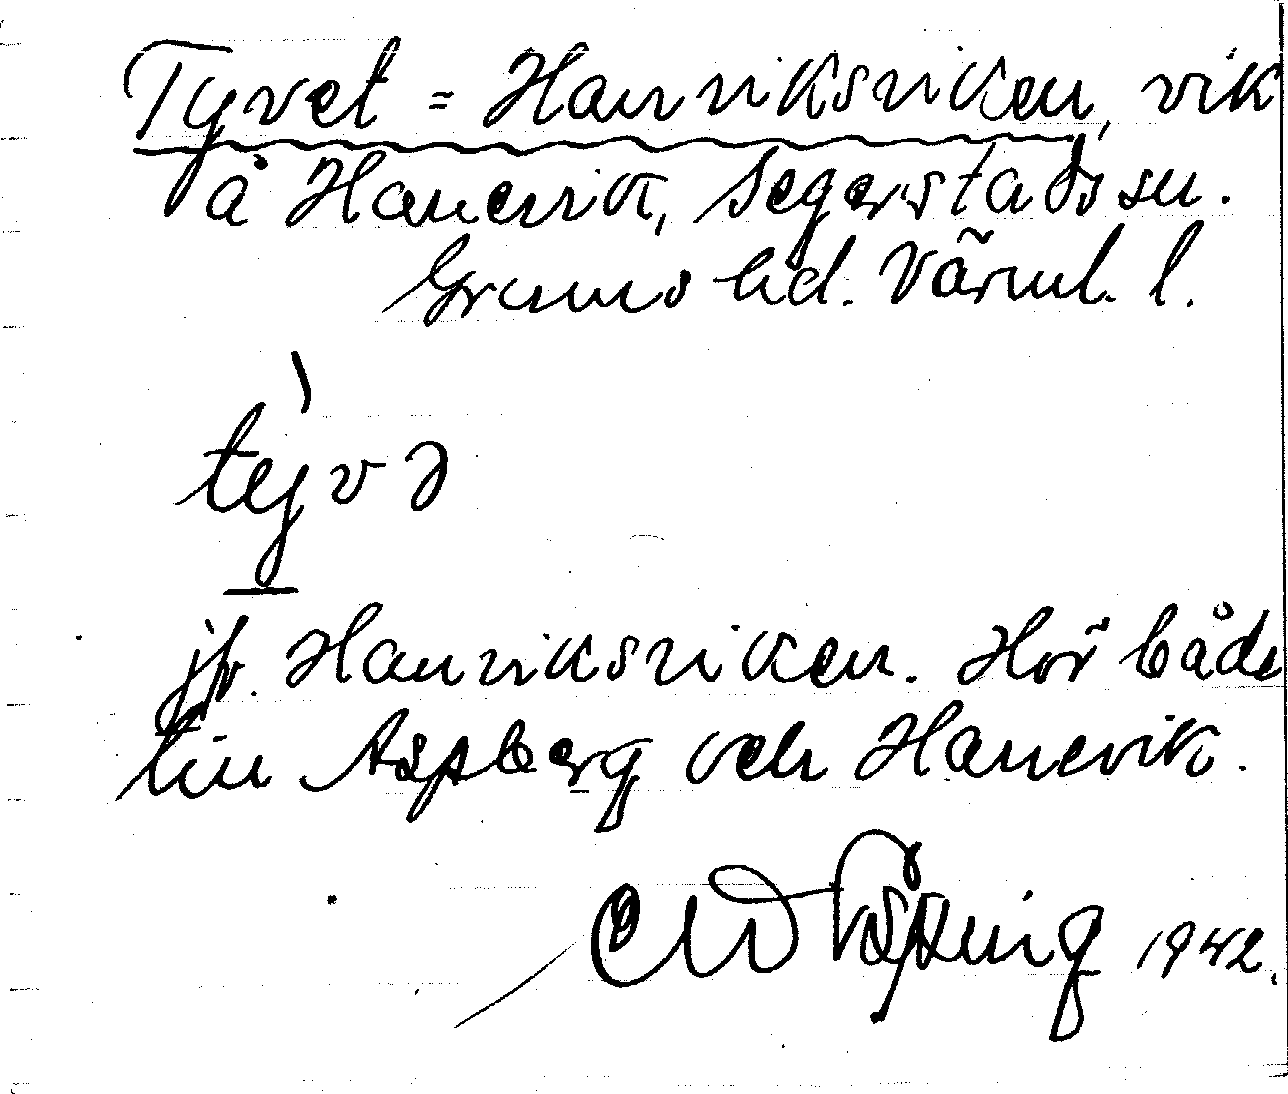 Tyvet = Hanviksviken, vik
å Hanevik, Segerstads sn.
Grums hd. Värml. l.
tyvə
jfr. Hanviksviken. Hör både
till Aspberg och Hanevik.
1942.